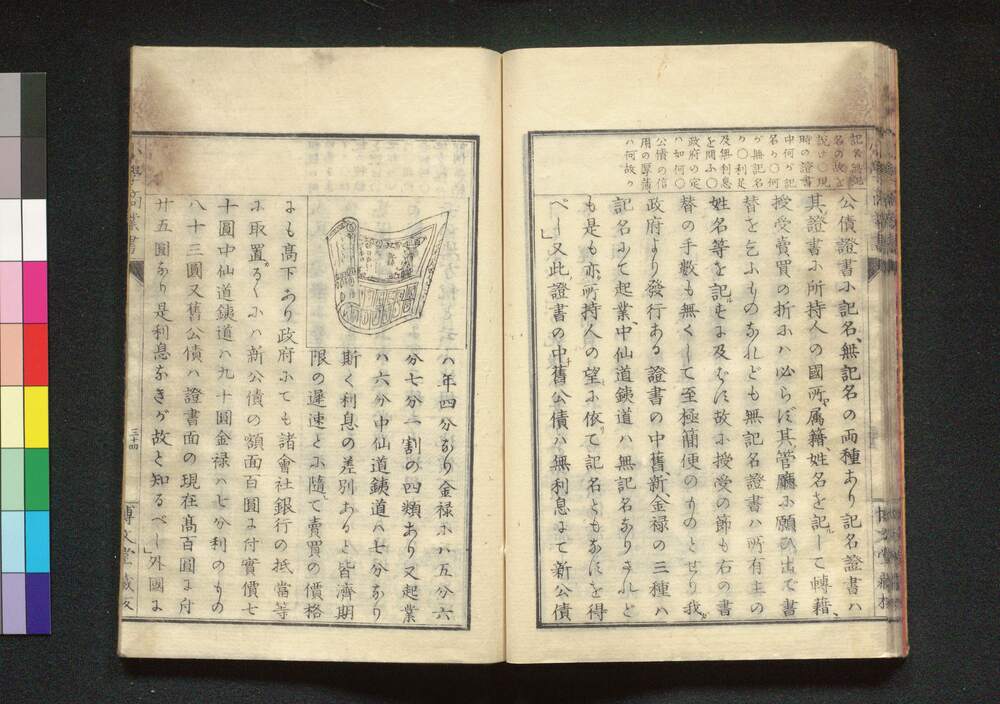 記名無記
名の故を
説け〇現
時の證書
中何が記
名か〇何
が無記名
か〇利足
及無利息
を問ふ〇
政府の定
ハ如何〇
公債の信
用の厚薄
ハ何故か
公債證書ふ記名、無記名の両種あり記名證書ハ
其證書ふ所持人の國所、属籍、姓名を記して轉籍、
授受賣買の折ふハ必らず其管廳ふ願ひ出で書
替を乞ふものなれども無記名證書ハ所有主の
姓名等を記もるに及むず故ふ授受の節も右の書
替の手數も無くして至極簡便のものとせり我が
政府より發行ある證書の中舊、新金禄の三種ハ
記名ふて起業、中仙道銕道ハ無記名なりされど
も是も亦所持人の望ふ依て記名ともなすを得
べし」又此證書の中舊公債ハ無利息にて新公債
ハ年四分なり金禄ふハ五分六
分七分一割の四類あり又起業
ハ六分中仙道銕道ハ七分なり
斯く利息の差別ありと皆濟期
限の遲速とふ隨て賣買の價格
にも髙下あり政府ふても諸會社銀行の抵當等
ふ取置るゝふハ新公債の額面百圓に付實價七
十圓中仙道銕道ハ九十圓金禄ハ七分利のもの
八十三圓又舊公債ハ證書面の現在髙百圓に付
廿五圓なり是利息なきが故と知るべし」外國に
商業書
三十四
博文堂藏版